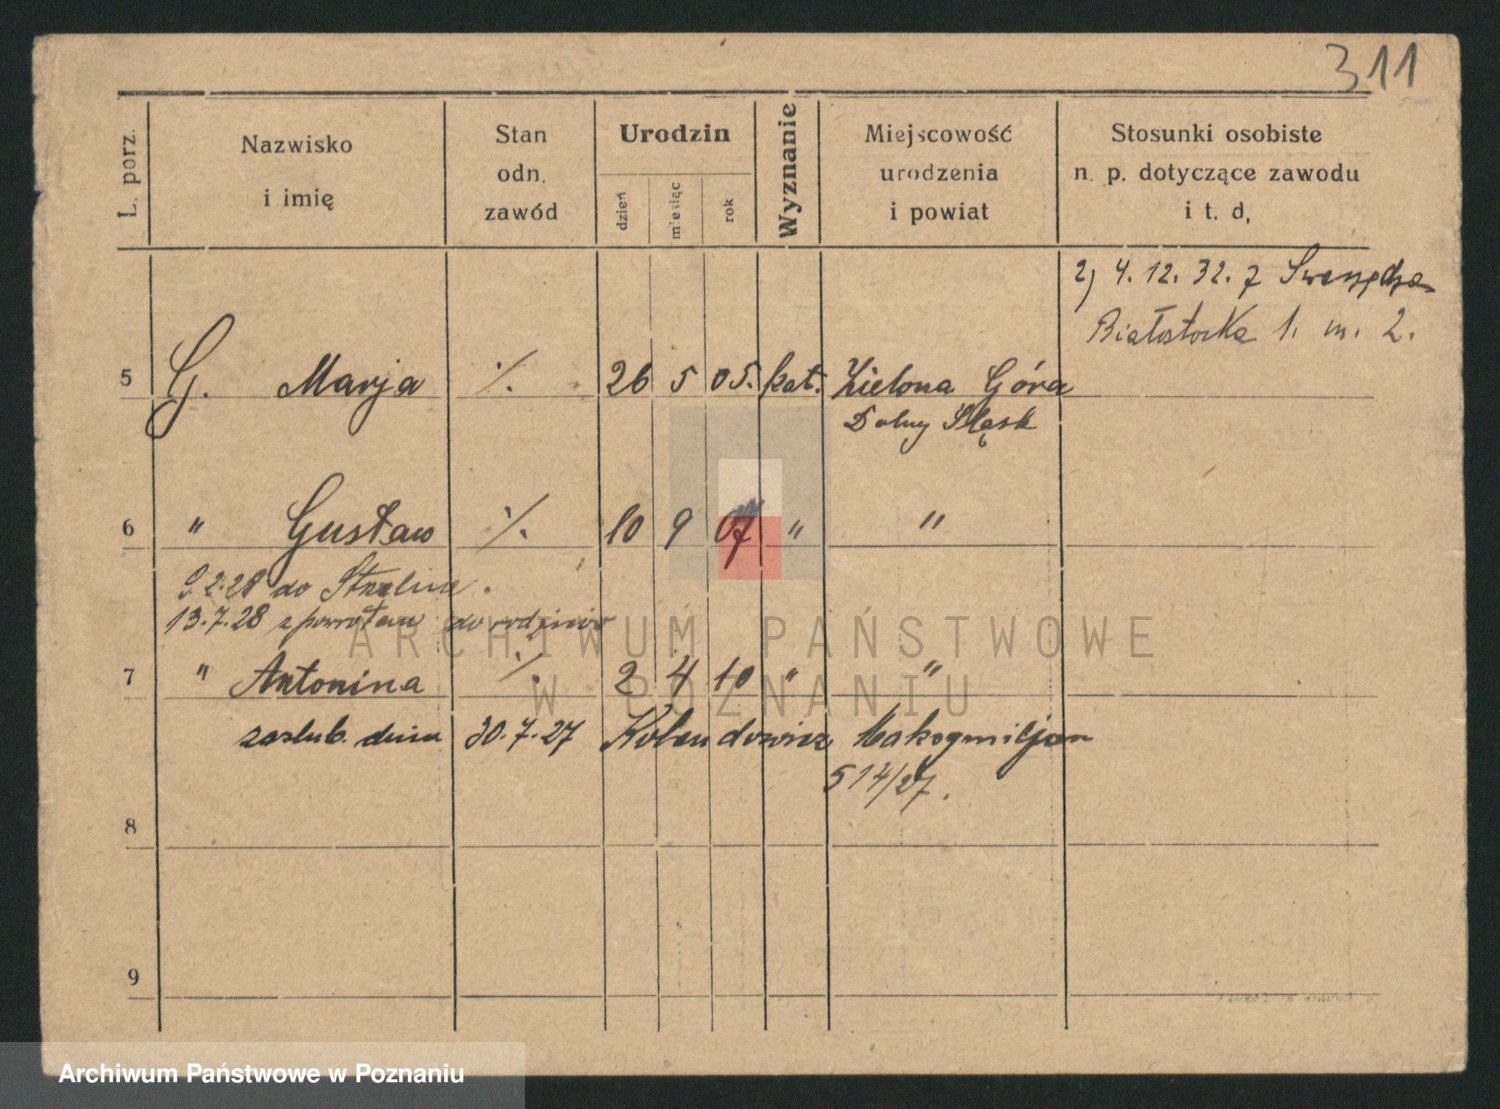 311
L. porz.
Nazwisko
i imię
Stan
odn.
zawód
Urodzin
dzień
miesiąc
rok
Wyznanie
Miejscowość
urodzenia
i powiat
Stosunki osobiste
n. p. dotyczące zawodu
i t. d.
2) 4. 12. 32. z Swarzędza
Białostocka 1. m. 2.
5 G. Marja ·/. 26 5 05. kat. Zielona Góra
Dolny Śląsk
6 " Gustaw ·/. 10 9 07 " "
9.2.28 do
13.7.28 z powrotem do rodziców
7 " Antonina ·/. 2 4 10 " "
zaślub. dnia 30.7.27 Kolendowicz Maksymiljan
514/27.
8
9
ARCHIWUM PAŃSTWOWE
W POZNANIU
Archiwum Państwowe w Poznaniu